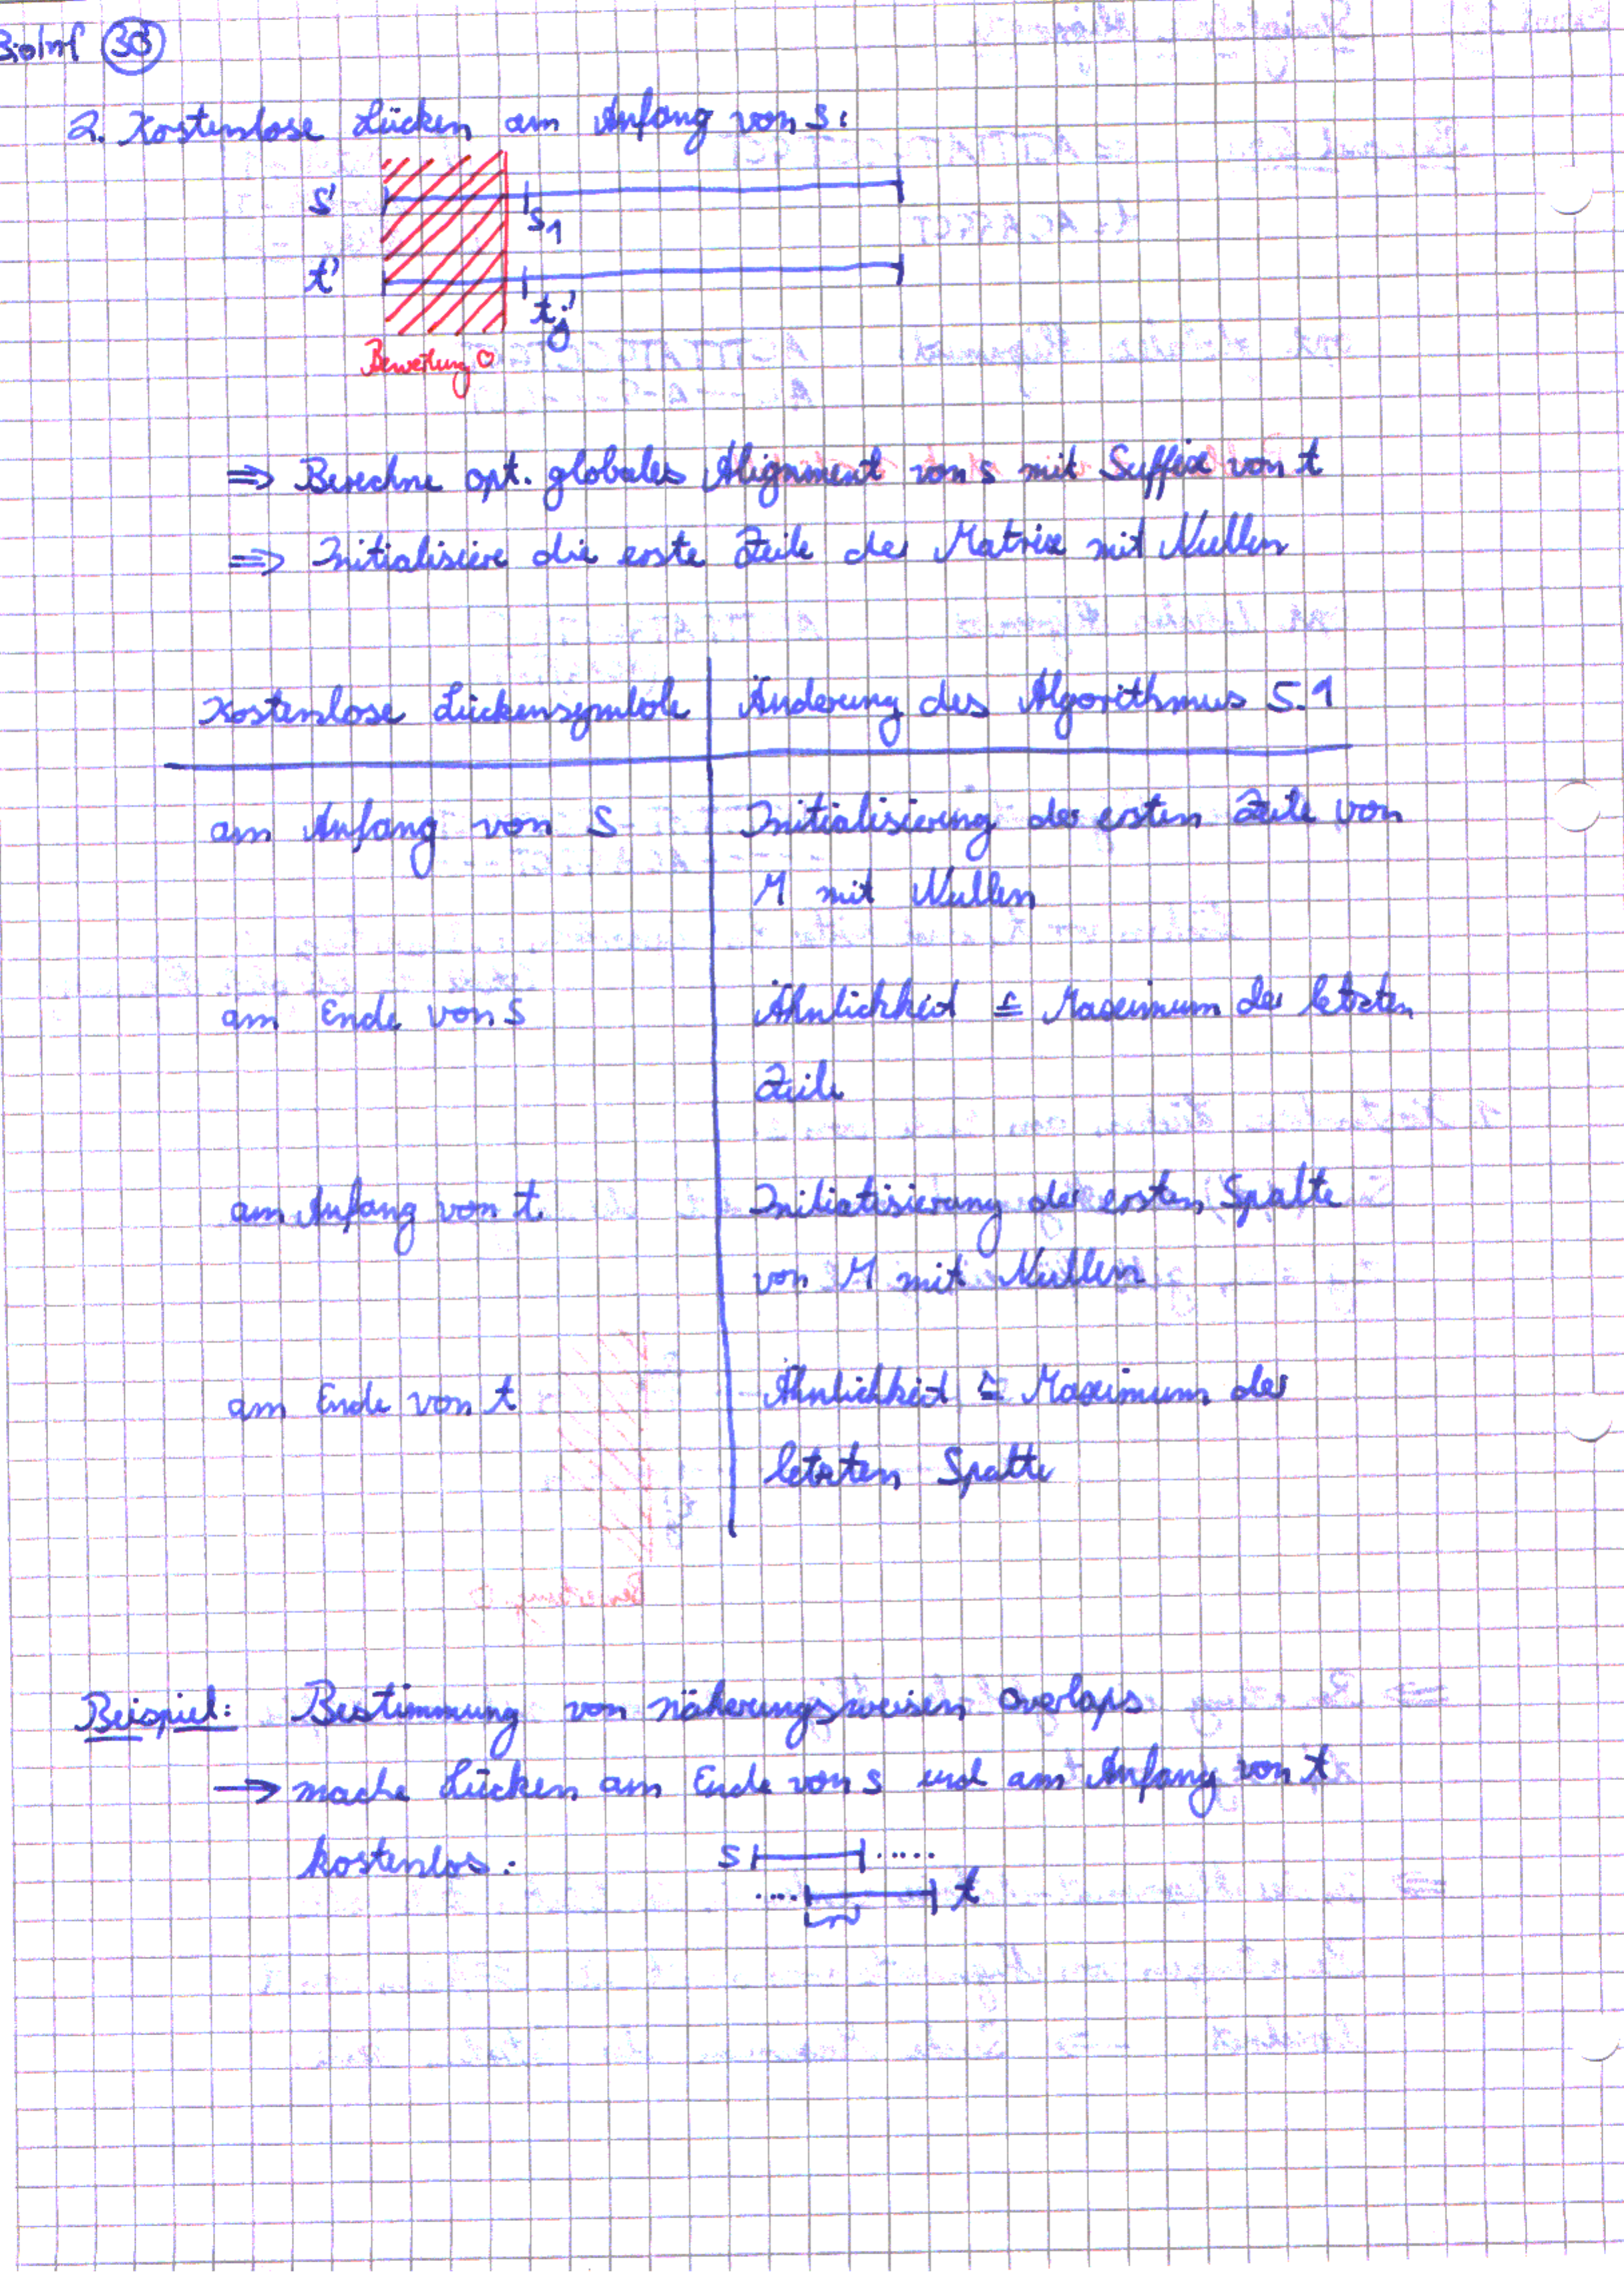 BioInf 38
2. Kostenlose Lücken am Anfang von s:
s'
s1
t'
tj'
Bewertung 0
⇒ Berechne opt. globales Alignment von s mit Suffix von t
⇒ Initialisiere die erste Zeile der Matrix mit Nullen
Kostenlose Lückensymbole | Änderung des Algorithmus 5.1
am Anfang von s | Initialisierung der ersten Zeile von
M mit Nullen
am Ende von s | Ähnlichkeit ≙ Maximum der letzten
Zeile
am Anfang von t | Initialisierung der ersten Spalte
von M mit Nullen
am Ende von t | Ähnlichkeit ≙ Maximum der
letzten Spalte
Beispiel: Bestimmung von näherungsweisen Overlaps
→ mache Lücken am Ende von s und am Anfang von t
kostenlos: s .....
.... t